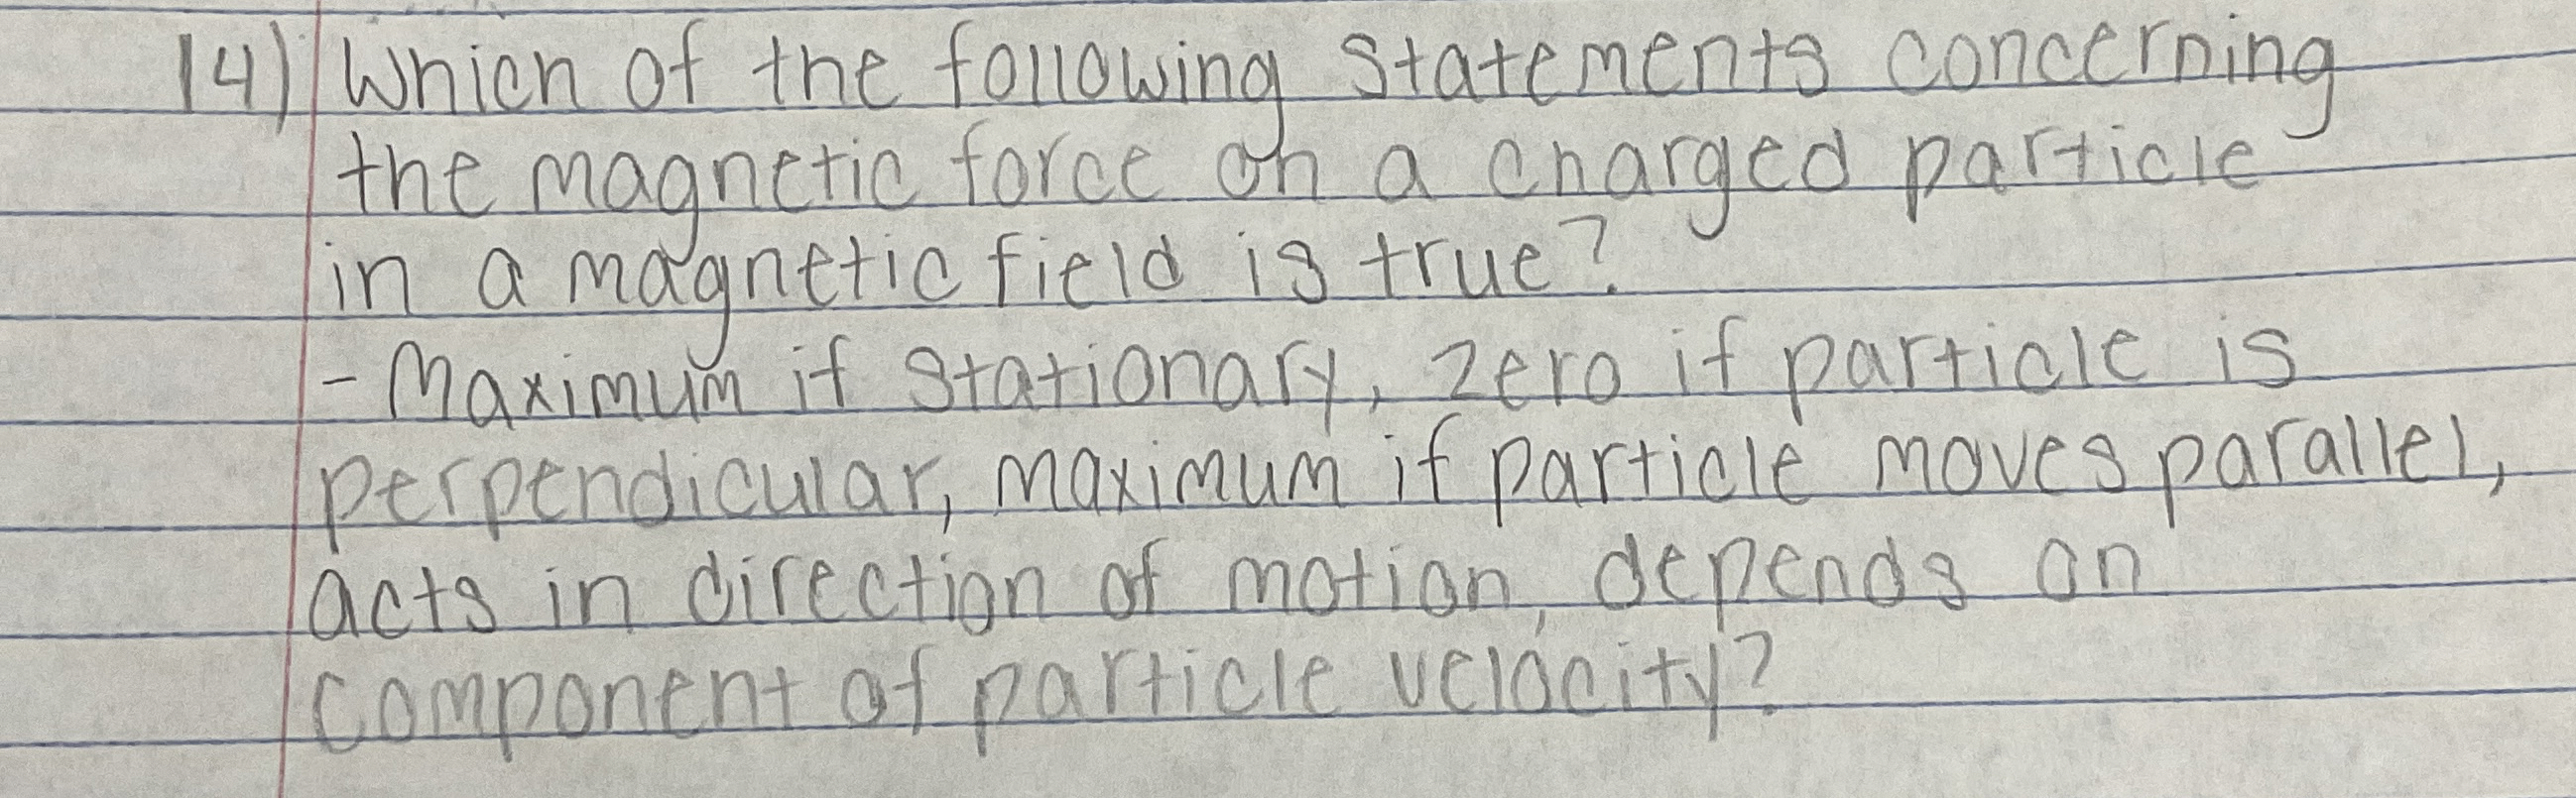 14) Which of the following statements concerning
the magnetic force on a charged particle
in a magnetic field is true?
- Maximum if stationary, zero if particle is
perpendicular, maximum if particle moves parallel,
acts in direction of motion, depends on
component of particle velocity?